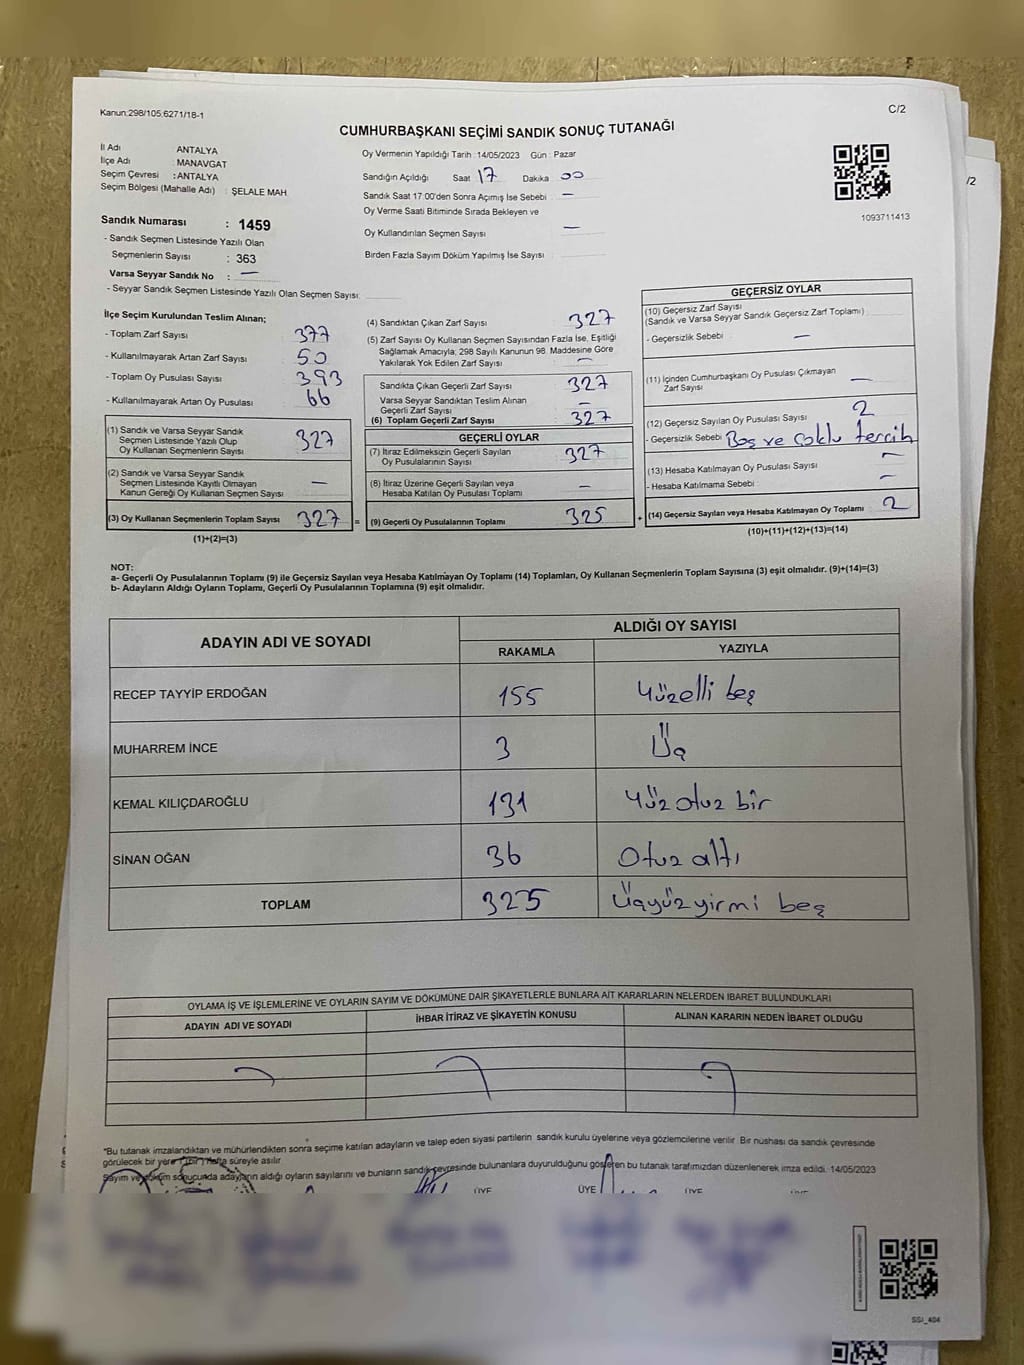 Kanun:298/105.6271/18-1
C/2
CUMHURBAŞKANI SEÇİMİ SANDIK SONUÇ TUTANAĞI
İl Adı ANTALYA
İlçe Adı : MANAVGAT
Seçim Çevresi : ANTALYA
Seçim Bölgesi (Mahalle Adı) : ŞELALE MAH.
Sandık Numarası : 1459
- Sandık Seçmen Listesinde Yazılı Olan
Seçmenlerin Sayısı : 363
Varsa Seyyar Sandık No : —
- Seyyar Sandık Seçmen Listesinde Yazılı Olan Seçmen Sayısı:
Oy Vermenin Yapıldığı Tarih : 14/05/2023 Gün : Pazar
Sandığın Açıldığı Saat 17 Dakika 00
Sandık Saat 17:00'den Sonra Açımış İse Sebebi : —
Oy Verme Saati Bitiminde Sırada Bekleyen ve
Oy Kullandırılan Seçmen Sayısı —
Birden Fazla Sayım Döküm Yapılmış İse Sayısı
1093711413
/2
İlçe Seçim Kurulundan Teslim Alınan;
- Toplam Zarf Sayısı 377
- Kullanılmayarak Artan Zarf Sayısı 50
- Toplam Oy Pusulası Sayısı 393
- Kullanılmayarak Artan Oy Pusulası 66
(1) Sandık ve Varsa Seyyar Sandık
Seçmen Listesinde Yazılı Olup
Oy Kullanan Seçmenlerin Sayısı 327
(2) Sandık ve Varsa Seyyar Sandık
Seçmen Listesinde Kayıtlı Olmayan
Kanun Gereği Oy Kullanan Seçmen Sayısı —
(3) Oy Kullanan Seçmenlerin Toplam Sayısı 327 =
(1)+(2)=(3)
(4) Sandıktan Çıkan Zarf Sayısı 327
(5) Zarf Sayısı Oy Kullanan Seçmen Sayısından Fazla İse, Eşitliği
Sağlamak Amacıyla; 298 Sayılı Kanunun 98. Maddesine Göre
Yakılarak Yok Edilen Zarf Sayısı —
Sandıkta Çıkan Geçerli Zarf Sayısı 327
Varsa Seyyar Sandıktan Teslim Alınan
Geçerli Zarf Sayısı —
(6) Toplam Geçerli Zarf Sayısı 327
GEÇERLİ OYLAR
(7) İtiraz Edilmeksizin Geçerli Sayılan
Oy Pusulalarının Sayısı 327
(8) İtiraz Üzerine Geçerli Sayılan veya
Hesaba Katılan Oy Pusulası Toplamı —
(9) Geçerli Oy Pusulalarının Toplamı 325 +
GEÇERSİZ OYLAR
(10) Geçersiz Zarf Sayısı
(Sandık ve Varsa Seyyar Sandık Geçersiz Zarf Toplamı)
- Geçersizlik Sebebi —
(11) İçinden Cumhurbaşkanı Oy Pusulası Çıkmayan
Zarf Sayısı —
(12) Geçersiz Sayılan Oy Pusulası Sayısı 2
- Geçersizlik Sebebi Boş ve çoklu tercih
(13) Hesaba Katılmayan Oy Pusulası Sayısı —
- Hesaba Katılmama Sebebi —
(14) Geçersiz Sayılan veya Hesaba Katılmayan Oy Toplamı 2
(10)+(11)+(12)+(13)=(14)
NOT:
a- Geçerli Oy Pusulalarının Toplamı (9) ile Geçersiz Sayılan veya Hesaba Katılmayan Oy Toplamı (14) Toplamları, Oy Kullanan Seçmenlerin Toplam Sayısına (3) eşit olmalıdır. (9)+(14)=(3)
b- Adayların Aldığı Oyların Toplamı, Geçerli Oy Pusulalarının Toplamına (9) eşit olmalıdır.
ADAYIN ADI VE SOYADI ALDIĞI OY SAYISI
RAKAMLA YAZIYLA
RECEP TAYYİP ERDOĞAN 155 Yüzelli beş
MUHARREM İNCE 3 Üç
KEMAL KILIÇDAROĞLU 131 Yüz otuz bir
SİNAN OĞAN 36 Otuz altı
TOPLAM 325 Üçyüzyirmi beş
OYLAMA İŞ VE İŞLEMLERİNE VE OYLARIN SAYIM VE DÖKÜMÜNE DAİR ŞİKAYETLERLE BUNLARA AİT KARARLARIN NELERDEN İBARET BULUNDUKLARI
ADAYIN ADI VE SOYADI İHBAR İTİRAZ VE ŞİKAYETİN KONUSU ALINAN KARARIN NEDEN İBARET OLDUĞU
*Bu tutanak imzalandıktan ve mühürlendikten sonra seçime katılan adayların ve talep eden siyasi partilerin sandık kurulu üyelerine veya gözlemcilerine verilir. Bir nüshası da sandık çevresinde
görülecek bir yere 1 (bir) hafta süreyle asılır.
Sayım ve döküm sonucunda adayların aldığı oyların sayılarını ve bunların sandık çevresinde bulunanlara duyurulduğunu gösteren bu tutanak tarafımızdan düzenlenerek imza edildi. 14/05/2023
ÜYE ÜYE ÜYE
SSI_404